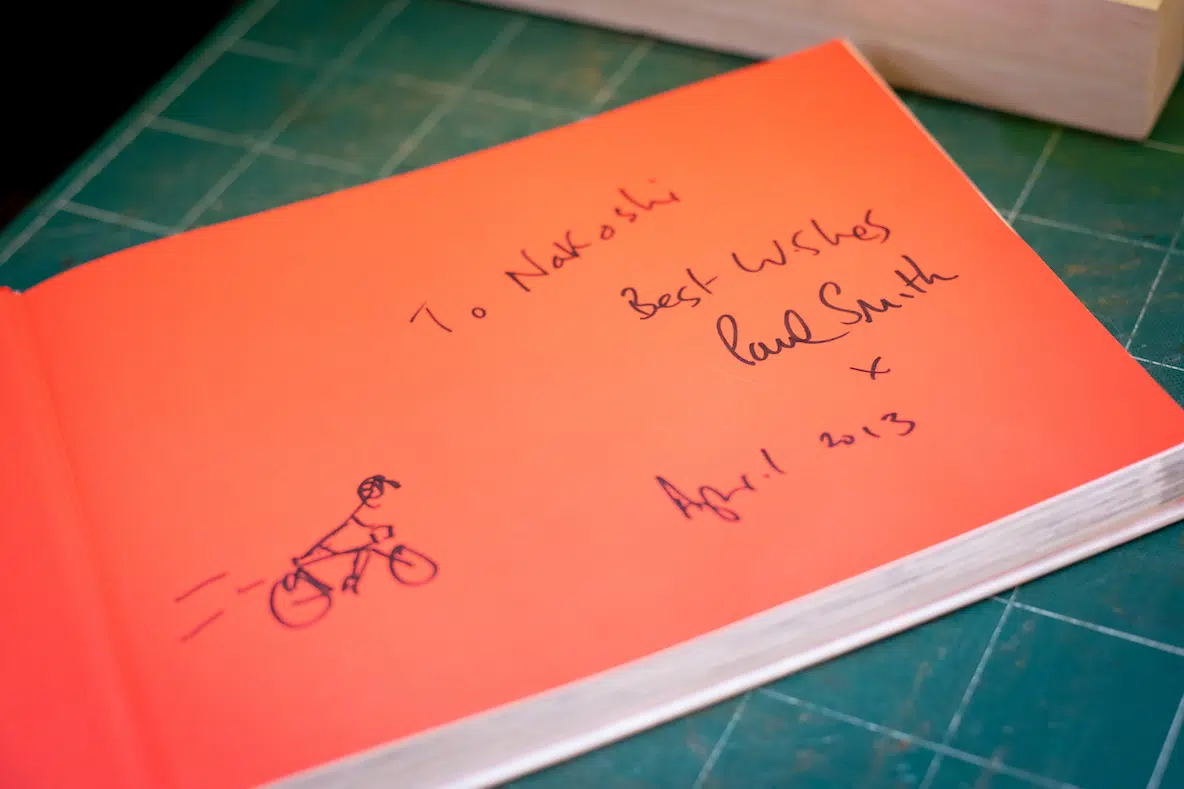 To Nakoshi
Best Wishes
Paul Smith
x
April 2013